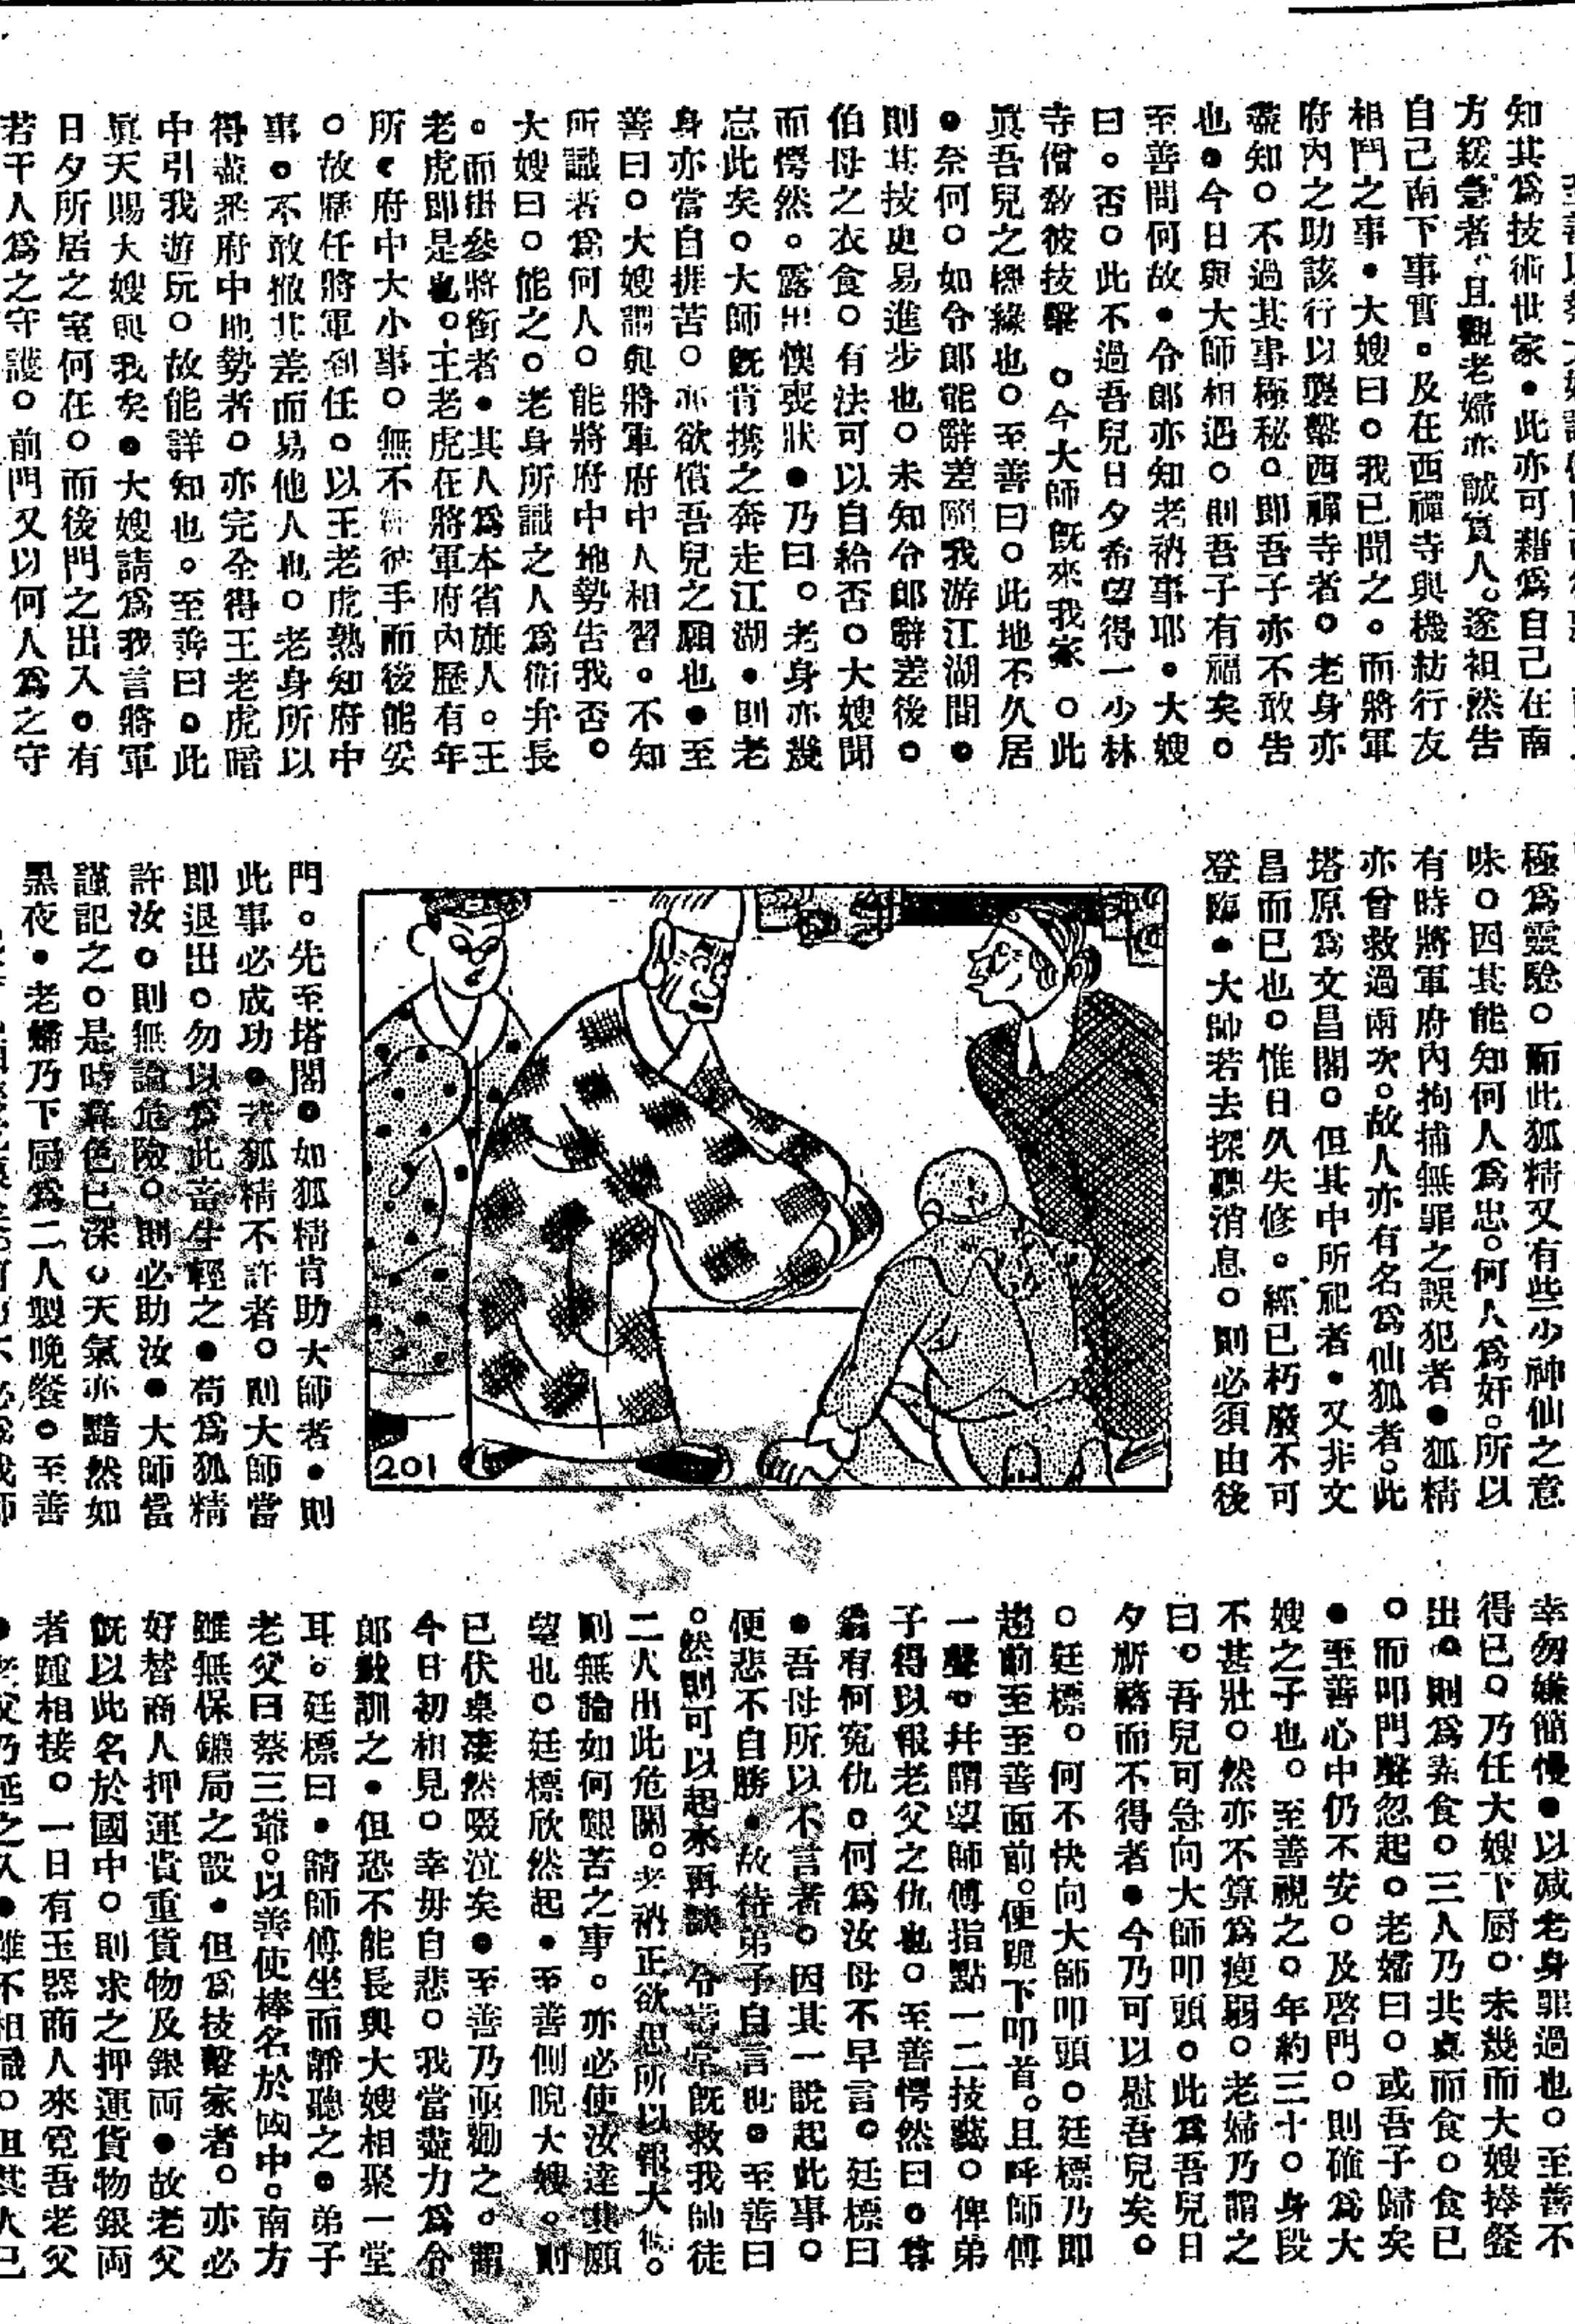 知其爲技術世家●此亦可藉爲自己在南
方緩急者、且觀老婦亦誠實人。遂袒然告
自己南下事實。及在西禪寺與機紡行友
相鬥之事●大嫂曰○我已聞之。而將軍
府內之助該行以襲擊西禪寺者○老身亦
盡知○不過其事極秘○即吾子亦不敢告
也●今日與大師相遇○則吾子有福矣○
至善問何故●令郎亦知老衲事耶●大嫂
曰。否○此不過吾兒日夕希望得一少林
寺僧教彼技擊○今大師既來我家○此
眞吾兒之機緣也○至善曰○此地不久居
●奈何○如令郎能辭差隨我游江湖間●
則其技更易進步也○未知令郎辭差後○
伯母之衣食○有法可以自給否○大嫂聞
而愕然。露出懊喪狀●乃曰。老身亦幾
忘此矣○大師既肯携之奔走江湖●則老
身亦當自捱苦○亦欲償吾兒之願也●至
善曰○大嫂謂與將軍府中人相習。不知
所識者爲何人○能將府中地勢告我否。
大嫂曰○能之○老身所識之人爲衛弁長
。而掛參將銜者●其人爲本省旗人。王
老虎即是也○王老虎在將軍府內歷有年
所●府中大小事○無不 彼手而後能妥
○故歷任將軍到任○以王老虎熟知府中
事●不敢撤其差而易他人也○老身所以
得盡悉府中地勢者○亦完全得王老虎暗
中引我游玩○故能詳知也。至善曰○此
眞天賜大嫂與我矣●大嫂請爲我言將軍
日夕所居之室何在○而後門之出入●有
若干人爲之守護○前門又以何人爲之守
極爲靈驗○而此狐精又有些少神仙之意
味○因其能知何人爲忠○何人爲奸。所以
有時將軍府內拘捕無罪之誤犯者●狐精
亦曾救過兩次○故人亦有名爲仙狐者。此
塔原爲文昌閣○但其中所祀者●又非文
昌而已也○惟日久失修。經已朽廢不可
登臨●大師若去探聽消息○則必須由後
門。先至塔閣●如狐精肯助大師者●則
此事必成功●若狐精不許者○則大師當
即退出○勿以爲此畜生輕之●苟爲狐精
許汝○則無論危險○則必助汝●大師當
謹記之○是時 色已深○天氣亦黯然如
黑夜●老婦乃下厨爲二人製晚餐○至善
201
幸勿嫌簡慢●以减老身罪過也○至善不
得已○乃任大嫂下厨○未幾而大嫂捧餐
出●則爲素食○三人乃共桌而食○食已
○而叩門聲忽起○老婦曰○或吾子歸矣
●至善心中仍不安○及啓門○則確爲大
嫂之子也。至善視之○年約三十○身段
不甚壯○然亦不算爲瘦弱○老婦乃謂之
曰。吾兒可急向大師叩頭○此爲吾兒日
夕所 而不得者●今乃可以慰吾兒矣。
○廷標。何不快向大師叩頭○廷標乃即
趨前至至善面前。便跪下叩首。且呼師傅
一聲○并謂望師傅指點一二技藝○俾弟
子得以報老父之仇也○至善愕然曰○尊
翁有何冤仇○何爲汝母不早言○廷標曰
●吾母所以不言者○因其一說起此事○
便悲不自勝●故待弟子自言也●至善曰
○然則可以起來再談 令 堂既救我師徒
二人出此危關。老衲正欲思所以報大 。
則無論如何艱苦之事。亦必使汝達其願
望也○廷標欣然起●至善側睨大嫂。則
已伏桌淒然啜泣矣●至善乃亟勸之。謂
今日初相見○幸毋自悲○我當盡力爲令
郎敎訓之●但恐不能長與大嫂相聚一堂
耳。廷標曰●請師傅坐而靜聽之●弟子
老父曰蔡三爺○以善使棒名於國中○南方
雖無保鑣局之設●但爲技擊家者○亦必
好替商人押運貴重貨物及銀両●故老父
既以此名於國中○則求之押運貨物銀両
者踵相接○一日有玉器商人來覓吾老父